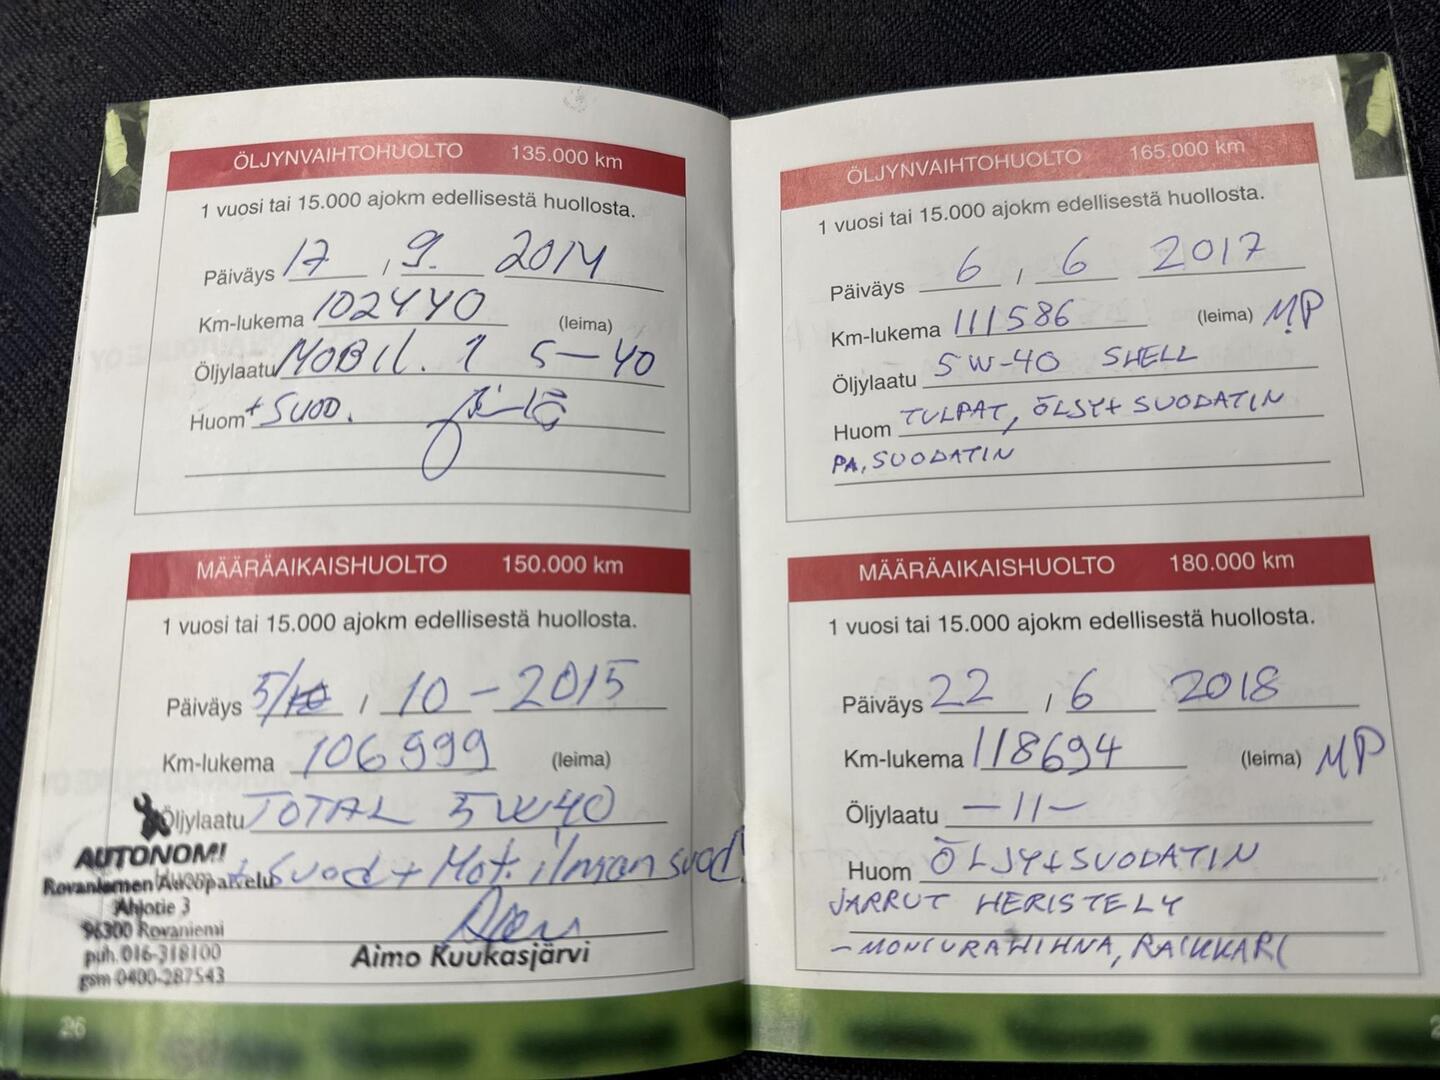 ÖLJYNVAIHTOHUOLTO 135.000 km
1 vuosi tai 15.000 ajokm edellisestä huollosta.
Päiväys 17 / 9. 2014
Km-lukema 102440 (leima)
Öljylaatu MOBIL. 1 5-40
Huom + SUOD.
MÄÄRÄAIKAISHUOLTO 150.000 km
1 vuosi tai 15.000 ajokm edellisestä huollosta.
Päiväys 5/10 / 10 - 2015
Km-lukema 106999 (leima)
Öljylaatu TOTAL 5W40
+ Suod + Mot. ilman suod
AUTONOMI
Rovaniemen Autopalvelu
Ahjotie 3
96300 Rovaniemi
puh. 016-318100
gsm 0400-287543
Aimo Kuukasjärvi
26
ÖLJYNVAIHTOHUOLTO 165.000 km
1 vuosi tai 15.000 ajokm edellisestä huollosta.
Päiväys 6 / 6 2017
Km-lukema 111586 (leima) MP
Öljylaatu 5W-40 SHELL
Huom TULPAT, ÖLJY+SUODATIN
PA, SUODATIN
MÄÄRÄAIKAISHUOLTO 180.000 km
1 vuosi tai 15.000 ajokm edellisestä huollosta.
Päiväys 22 / 6 2018
Km-lukema 118694 (leima) MP
Öljylaatu -11-
Huom ÖLJY+SUODATIN
JARRUT HERISTELY
- MONIURAHIHNA,